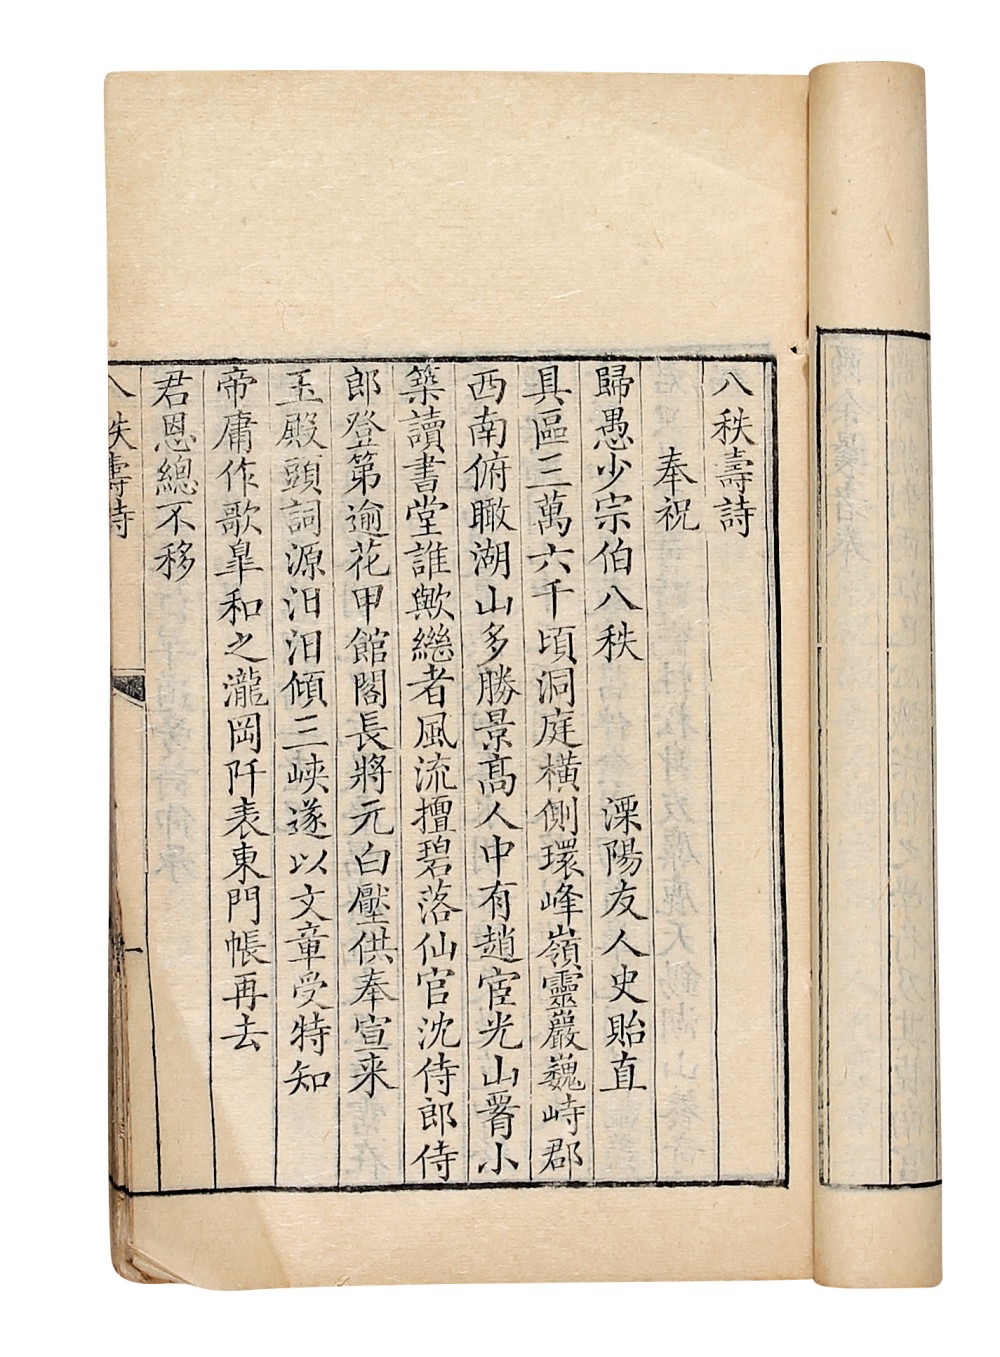 八秩壽詩
奉祝
歸愚少宗伯八秩 溧陽友人史貽直
具區三萬六千頃洞庭橫側環峰嶺靈巖巍峙郡
西南俯瞰湖山多勝景髙人中有趙宧光山胥小
築讀書堂誰歟繼者風流擅碧落仙官沈侍郎侍
郎登第逾花甲館閣長將元白壓供奉宣來
玉殿頭詞源汨汨傾三峽遂以文章受特知
帝庸作歌臯和之瀧岡阡表東門帳再去
君恩總不移
八秩壽詩
一